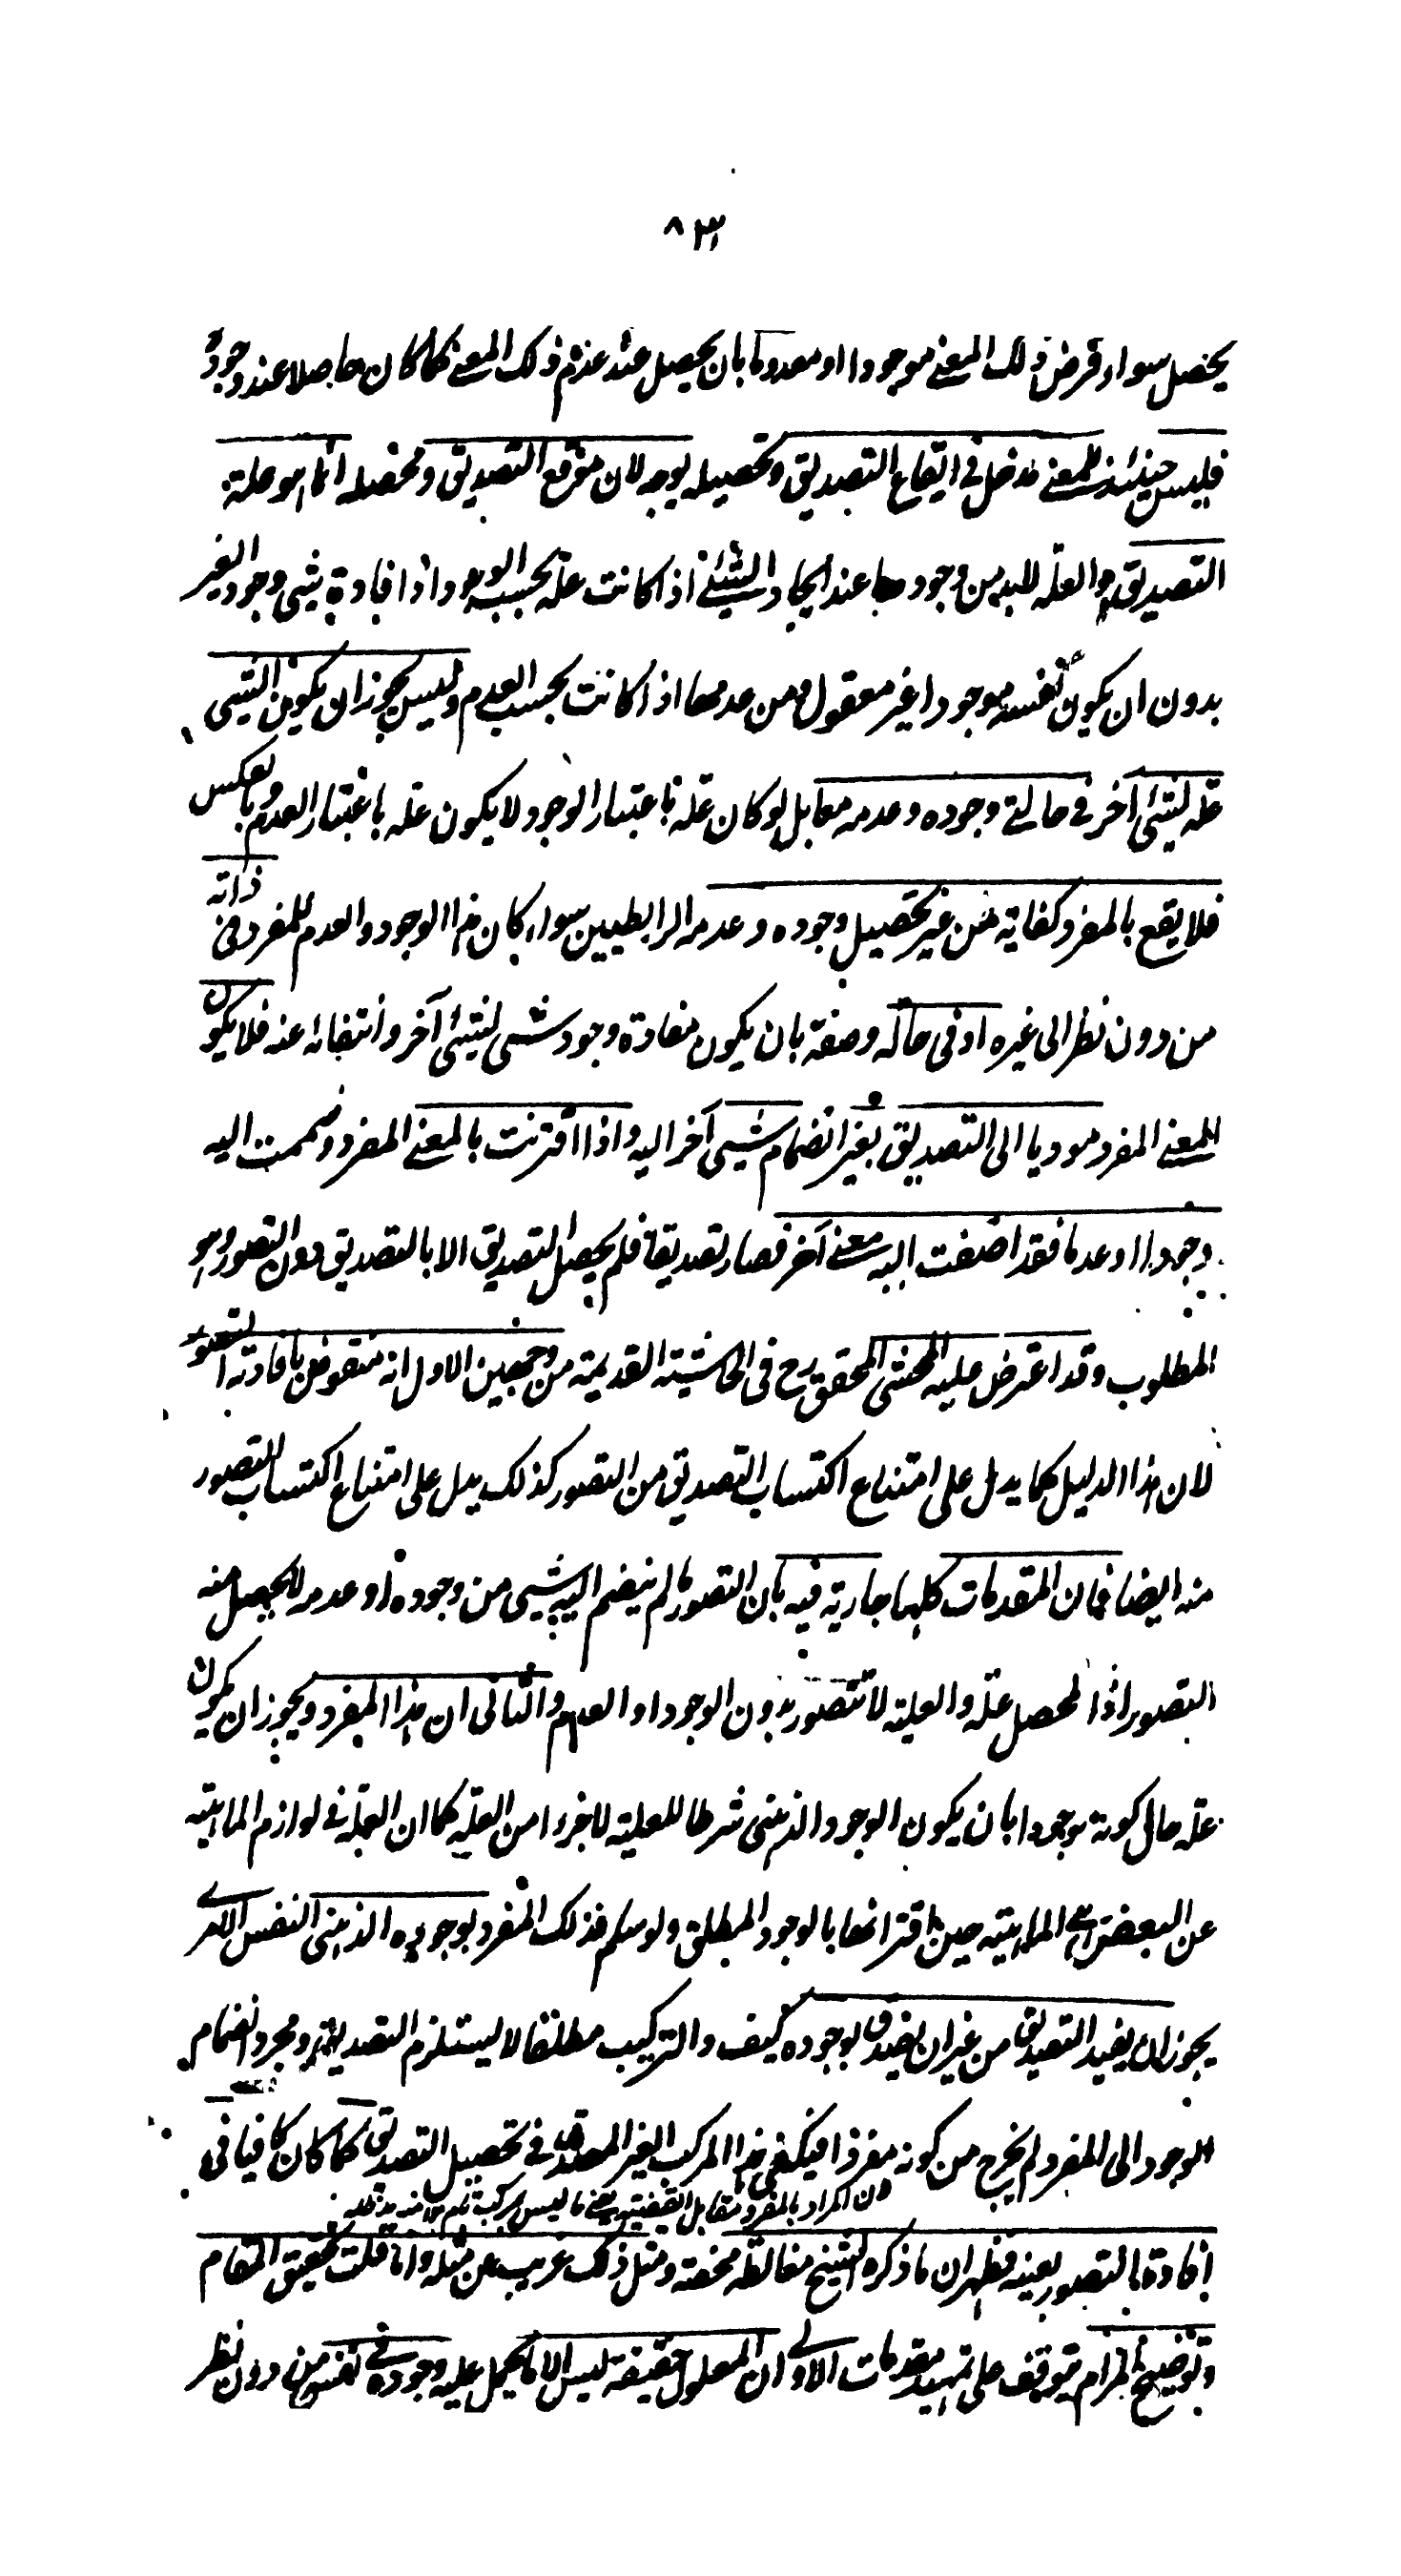 ٨٣
يحصل سواء فرض ذلك المعنى موجودا او معدوما بان يحصل عند عدم ذلك المعنى كما كان حاصلا عند وجوده
فليس حينئذ للمعنى مدخل فى ايقاع التصديق وتحصيله بوجه لان موقع التصديق ومحصله انما هو علة
التصديق والعلة لابد من وجودها عند ايجاد الشيئ اذا كانت علة بحسب الوجود اذ افادة شيى وجود الغير
بدون ان يكون نفسه موجودا غير معقول ومن عدمها اذا كانت بحسب العدم وليس يجوز ان يكون الشيى
علة لشيئ آخر فى حالتى وجوده وعدمه معا بل لو كان علة باعتبار الوجود لا يكون علة باعتبار العدم وبالعكس
فلا يقع بالمفرد كفاية من غير تحصيل وجوده وعدمه الرابطيين سواء كان هذا الوجود والعدم للمفرد فى ذاته
من دون نظر الى غيره او فى حالة وصفة بان يكون مفاده وجود شيى لشيئ آخر وانتفائه عنه فلا يكون
المعنى المفرد موديا الى التصديق بغير انضمام شيى آخر اليه واذا اقترنت بالمعنى المفرد وضممت اليه
وجودا او عدما فقد اضفت اليه معنى آخر فصار تصديقا فلم يحصل التصديق الا بالتصديق دون التصور وهو
المطلوب وقد اعترض عليه المحشى المحقق رح فى الحاشية القديمة من وجهين الاول انه منقوض بافادته التصور
لان هذا الدليل كما يدل على امتناع اكتساب التصديق من التصور كذلك يدل على امتناع اكتساب التصور
منه ايضا فان المقدمات كلها جارية فيه بان التصور ما لم ينضم اليه شيى من وجوده او عدمه لا يحصل منه
التصور اذ المحصل علة والعلية لا تتصور بدون الوجود او العدم والثانى ان هذا المفرد ويجوز ان يكون
علة حال كونه موجودا بان يكون الوجود الذهنى شرطا للعلية لا جزءا من العلة كما ان العلة فى لوازم الماهية
عن البعض هى الماهية حين اقترانها بالوجود المطلق ولو سلم فذلك المفرد بوجوده الذهنى النفس الامرى
يجوز ان يفيد التصديق من غير ان يصدق بوجوده كيف والتركيب مطلقا لا يستلزم التصديق ومجرد انضمام
الوجود الى المفرد لم يخرج من كونه مفردا فيكفى هذا المركب الغير المصدق فى تحصيل التصديق كما كان كافيا فى
لان المراد بالمفرد مقابل القضية يعنى ما ليس بمركب تام
افادة التصور بعينه فظهر ان ما ذكره الشيخ مغالطة محضة ومثل ذلك غريب عن مثله وانا قلت تحقيق المقام
وتوضيح المرام يتوقف على تمهيد مقدمات الاولى ان المعلول حقيقة ليس الا ما يحمل عليه وجوده فى نفسه من دون نظر